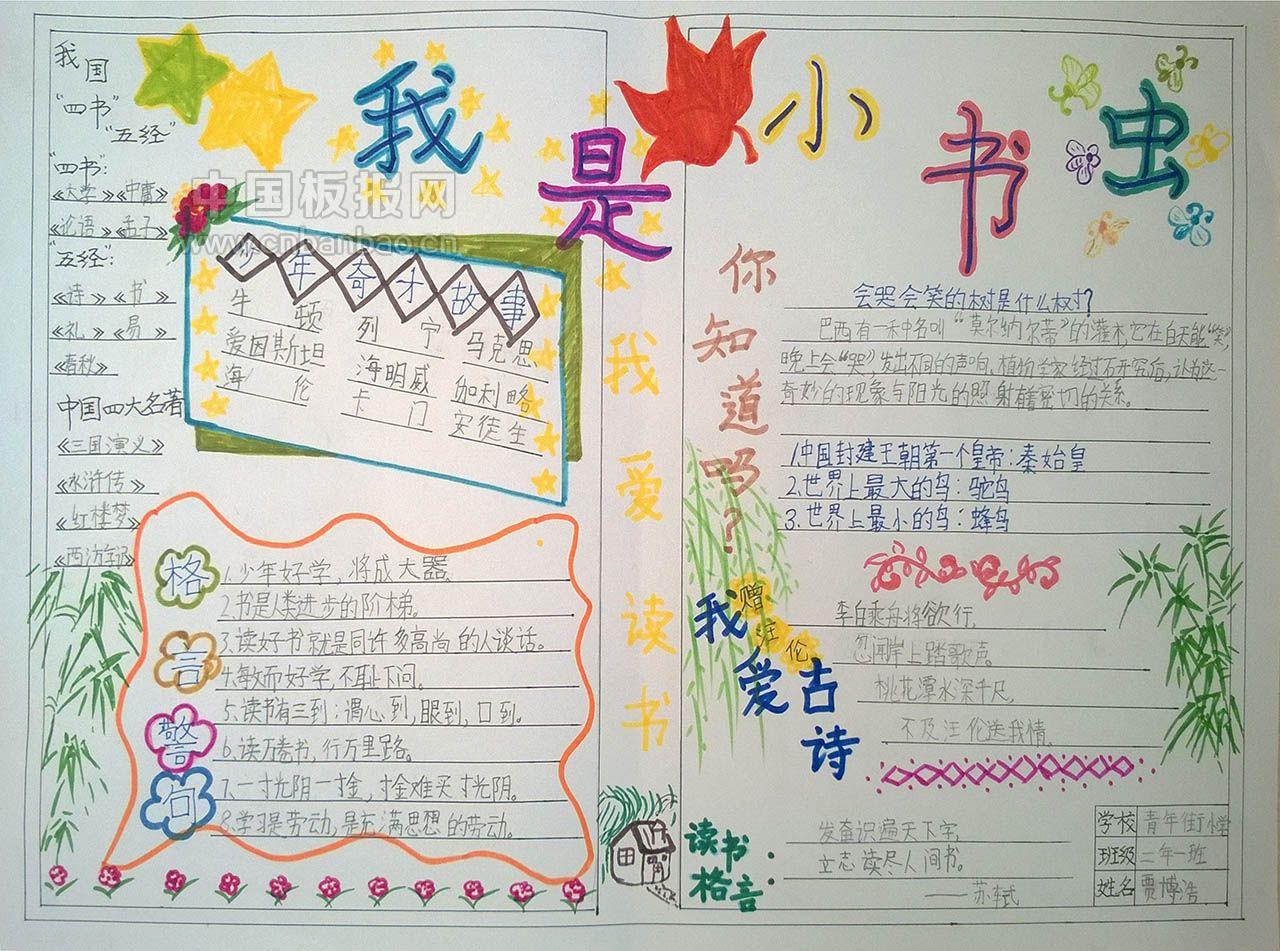 我是小书虫
中国板报网
www.cnbanbao.cn
我国
"四书"
"五经"
"四书":
《大学》《中庸》
《论语》《孟子》
"五经":
《诗》《书》
《礼》《易》
《春秋》
中国四大名著
《三国演义》
《水浒传》
《红楼梦》
《西游记》
少年奇才故事
牛顿 列宁 马克思
爱因斯坦 海明威 伽利略
海伦 卡门 安徒生
格言警句
1.少年好学,将成大器。
2.书是人类进步的阶梯。
3.读好书就是同许多高尚的人谈话。
4.敏而好学,不耻下问。
5.读书有三到:谓心到,眼到,口到。
6.读万卷书,行万里路。
7.一寸光阴一寸金,寸金难买寸光阴。
8.学习是劳动,是充满思想的劳动。
我爱读书
你知道吗?
会哭会笑的树是什么树?
巴西有一种名叫"莫尔纳尔蒂"的灌木,它在白天能"笑",
晚上会"哭",发出不同的声响。植物学家经过研究后,认为这一
奇妙的现象与阳光的照射有着密切的关系。
1.中国封建王朝第一个皇帝:秦始皇
2.世界上最大的鸟:鸵鸟
3.世界上最小的鸟:蜂鸟
我爱古诗
赠汪伦
李白乘舟将欲行,
忽闻岸上踏歌声。
桃花潭水深千尺,
不及汪伦送我情。
读书格言:
发奋识遍天下字,
立志读尽人间书。
——苏轼
学校 青年街小学
班级 二年一班
姓名 贾博浩